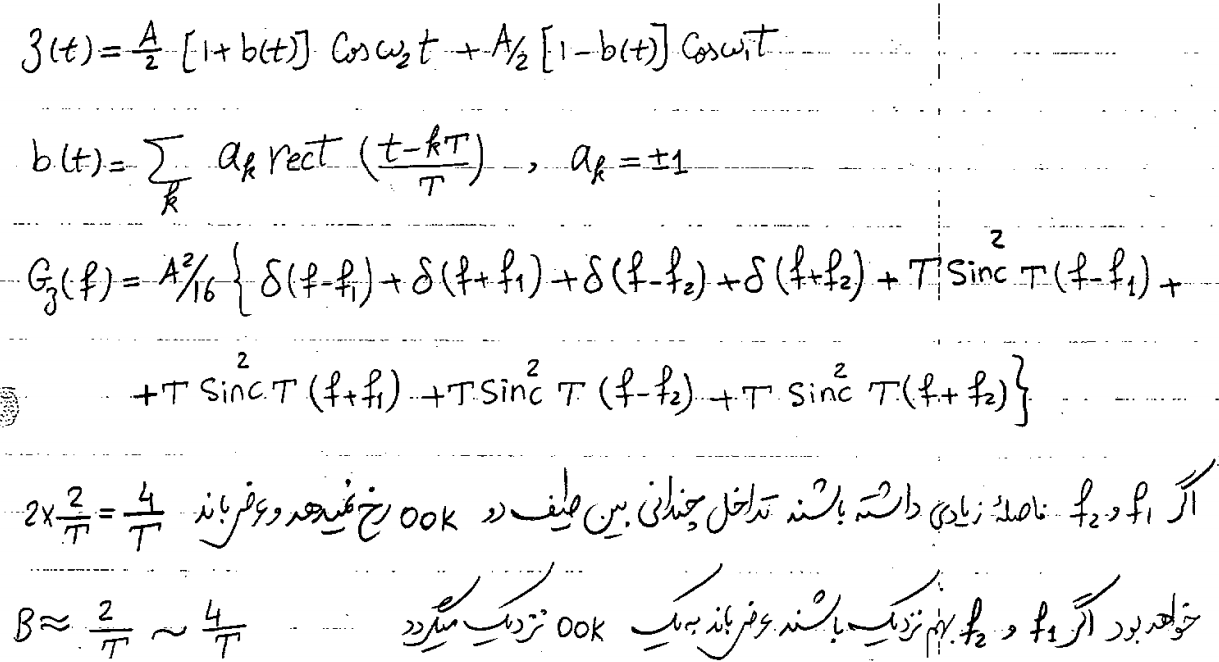 z(t) = A/2 [1+b(t)] Cos ω₂t + A/2 [1-b(t)] Cos ω₁t
b(t) = Σ_k a_k rect ((t-kT)/T) , a_k = ±1
G_z(f) = A²/16 { δ(f-f₁) + δ(f+f₁) + δ(f-f₂) + δ(f+f₂) + T Sinc² T(f-f₁) +
+T Sinc² T (f+f₁) + T Sinc² T (f-f₂) + T Sinc² T(f+f₂)}
اگر f₁ و f₂ فاصلهٔ زیادی داشته باشند تداخل چندانی بین طیف دو OOK رخ نمیدهد و عرض باند 2×2/T = 4/T
خواهد بود اگر f₁ و f₂ بهم نزدیک باشند عرض باند به یک OOK نزدیک میگردد B ≈ 2/T ~ 4/T